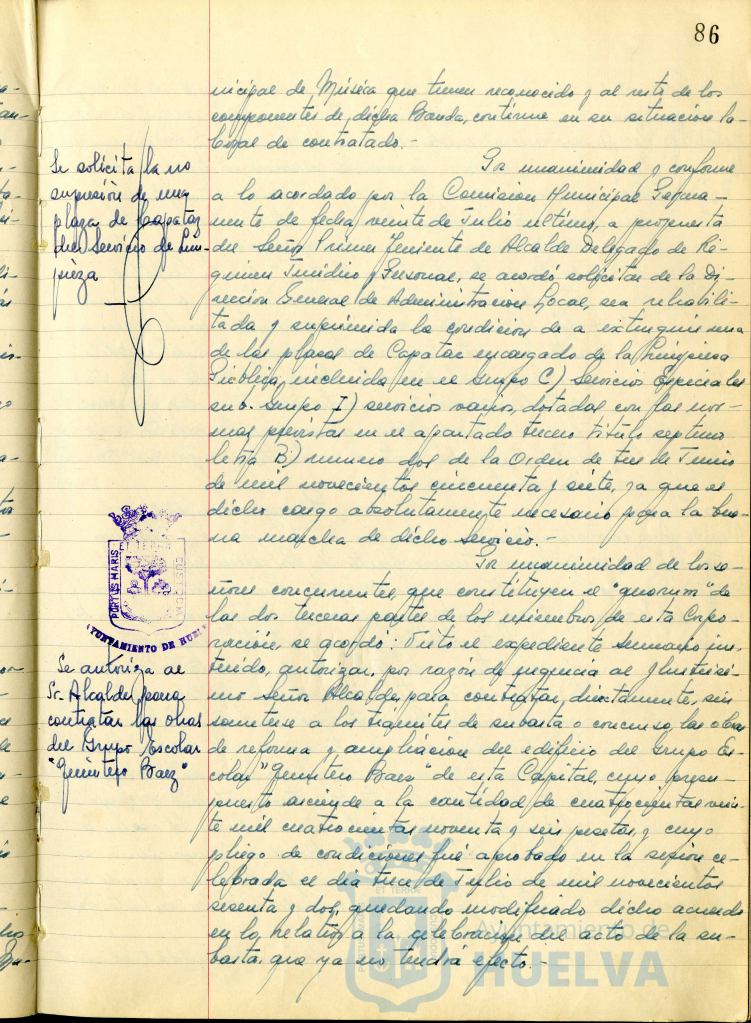 86
nicipal de Música que tienen reconocido y al resto de los
componentes de dicha Banda, continue en su situación la-
boral de contratado.-
Se solicita la no
supresión de una
plaza de Capataz
del Servicio de Lim-
pieza
Por unanimidad y conforme
a lo acordado por la Comision Municipal Perma-
nente de fecha veinte de Julio ultimo, a propuesta
del Señor Primer Teniente de Alcalde Delegado de Ré-
gimen Juridico y Personal, se acordó solicitar de la Di-
rección General de Administracion Local, sea rehabili-
tada y suprimida la condicion de a extinguir una
de las plazas de Capataz encargado de la Limpieza
Pública, incluida en el Grupo C) Servicios Especiales
sub-grupo I) servicios varios, dotadas con las nor-
mas previstas en el apartado tercero titulo septimo
letra B) numero dos de la Orden de tres de Junio
de mil novecientos cincuenta y siete, ya que es
dicho cargo absolutamente necesario para la bue-
na marcha de dicho servicio.-
PORTUS MARIS ET TERRE CUSTODIA
AYUNTAMIENTO DE HUELVA
Se autoriza al
Sr. Alcalde, para
contratar las obras
del Grupo Escolar
"Quintero Baez"
Por unanimidad de los se-
ñores concurrentes, que constituyen el "quorum" de
las dos terceras partes de los miembros de esta Corpo-
ración, se acordó: Visto el expediente sumario ins-
truido, autorizar, por razón de urgencia al Ilustrisi-
mo Señor Alcalde, para contratar, directamente, sin
someterse a los trámites de subasta o concurso, las obras
de reforma y ampliacion del edificio del Grupo Es-
colar "Quintero Baez" de esta Capital, cuyo presu-
puesto asciende a la cantidad de cuatrocientas vein-
te mil cuatrocientas noventa y seis pesetas, y cuyo
pliego de condiciones fué aprobado en la sesión ce-
lebrada el dia trece de Julio de mil novecientos
sesenta y dos, quedando modificado dicho acuerdo
en lo relativo a la celebracion del acto de la su-
basta, que ya no tendrá efecto.-
Ayuntamiento de
HUELVA